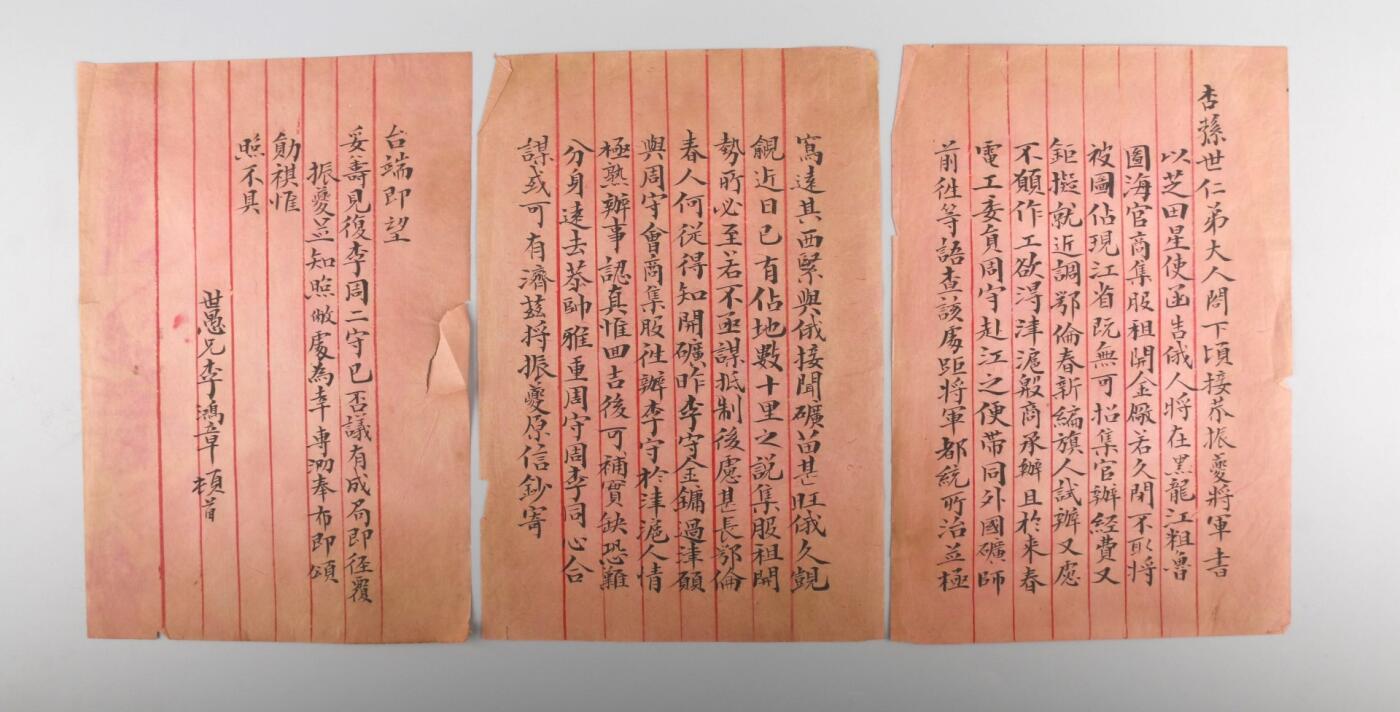 杏蓀世仁弟大人閣下頃接恭振夔將軍書
以芝田星使函告俄人將在黑龍江粗魯
圖海官商集股租開金廠若久閉不取將
被圖佔現江省既無可招集官辦經費又
鉅擬就近調鄂倫春新編旗人試辦又慮
不願作工欲淂津滬殷商承辦且於来春
電工委員周守赴江之便帶同外國礦師
前徃等語查該處距將軍都統所治並極
寫遠其西緊與俄接聞礦苗甚旺俄久覬
覦近日已有佔地數十里之説集股租開
勢所必至若不亟謀抵制後慮甚長鄂倫
春人何従得知開礦昨李守金鏞過津願
與周守會商集股徃辦李守於津滬人情
極熟辦事認真惟回吉後可補實缺恐難
分身遠去恭帥雅重周守周李同心合
謀或可有濟茲將振夔原信鈔寄
台端即望
妥籌見復李周二守已否議有成局即徑覆
振夔並知照敝處為幸專泐奉布即頌
勛祺惟
照不具
世愚兄李鴻章頓首